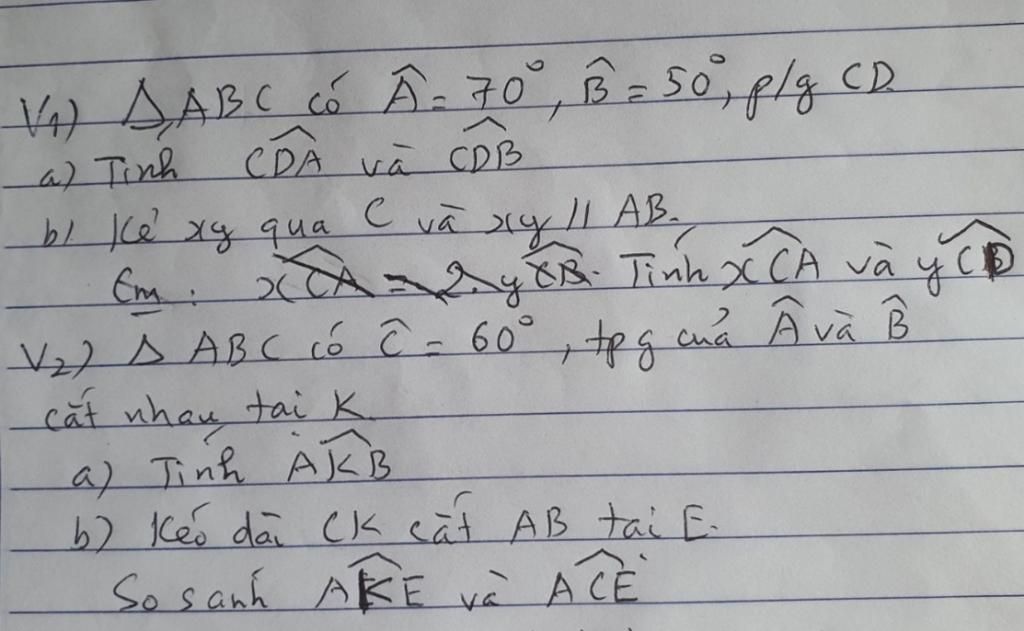 V1) Δ ABC có Â = 70°, B̂ = 50°, p/g CD
a) Tính CDA và CDB
b/ Kẻ xy qua C và xy // AB.
Cm: xCA = 2.yCB. Tính xCA và yCD
V2) Δ ABC có Ĉ = 60°, tpg của Â và B̂
cắt nhau tại K
a) Tính AKB
b) Kéo dài CK cắt AB tại E.
So sánh AKE và ACE